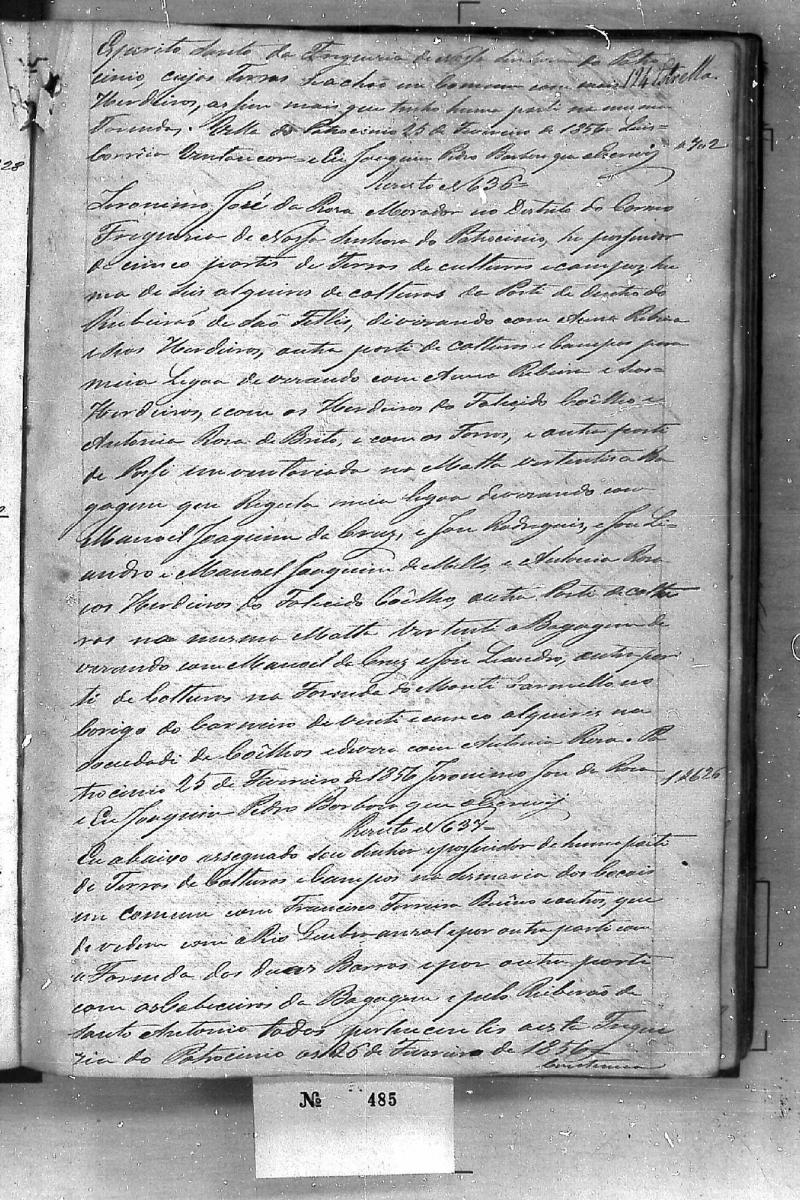 Espirito Santo da Freguezia de Nossa Senhora do Patro
cinio, cujas Terras se achão em Comum com mais 194 Estrella.
Herdeiros, assim mais que tenho huma parte na mesma
Fazenda. Villa do Patrocinio 25 de Fevereiro de 1856. Luis
Correia e Eu Joaquim Pedro Barbosa que o Escrevi
702
Rezisto Nº 636
Jeronimo José da Rosa Morador no Destrito do Carmo
Freguezia de Nossa Senhora do Patrocinio, he possuidor
de cinco partes de Terras de culturas e campos, hu
ma de seis alqueires de colturas da Parte de dentro do
Ribeirão de São Fellis, devizando com Anna Ribeira
e seos Herdeiros, outra parte de colturas e Campos
meia Legoa devizando com Anna Ribeira e seos
Herdeiros, e com os Herdeiros do Falecido Coêlho e
Antonia Rosa de Brito, e com os e outra parte
de na Matta vertentes a Ba
gagem que Regula meia legoa devizando com
Manoel Joaquim da Cruz, e José Rodrigues, e José Li
andro e Manoel Joaquim de Mello, e Antonia Rosa
e os Herdeiros do Falecido Coêlho, outra Parte de coltu
ras na mesma Matta Vertente a Bagagem de
vizando com Manoel da Cruz e José Leandro, outra par
te de Colturas na Fazenda do Monte Carmello no
Corigo do Carneiro de vinte e cinco alqueires na
Sociedade de Coêlhos e deviza com Antonia Rosa. Pa
trocinio 25 de Fevereiro de 1856 Jeronimo José da Rosa
e Eu Joaquim Pedro Barbosa que o Escrevi
12626
Rezisto Nº 637
Eu abaixo assegnado sou Senhor e possuidor de huma parte
de Terras de Colturas e Campos na Sesmaria dos Cocais
em comum com Francisco Ferreira e outros, que
devidem com o Rio e por outra parte com
a Fazenda das Duas Barras e por outra parte
com as Cabeceiras da Bagagem e pelo Ribeirão de
Santo Antonio todas pertencentes a esta Fregue
zia do Patrocinio aos 26 de Fevereiro de 1856
Nº 485